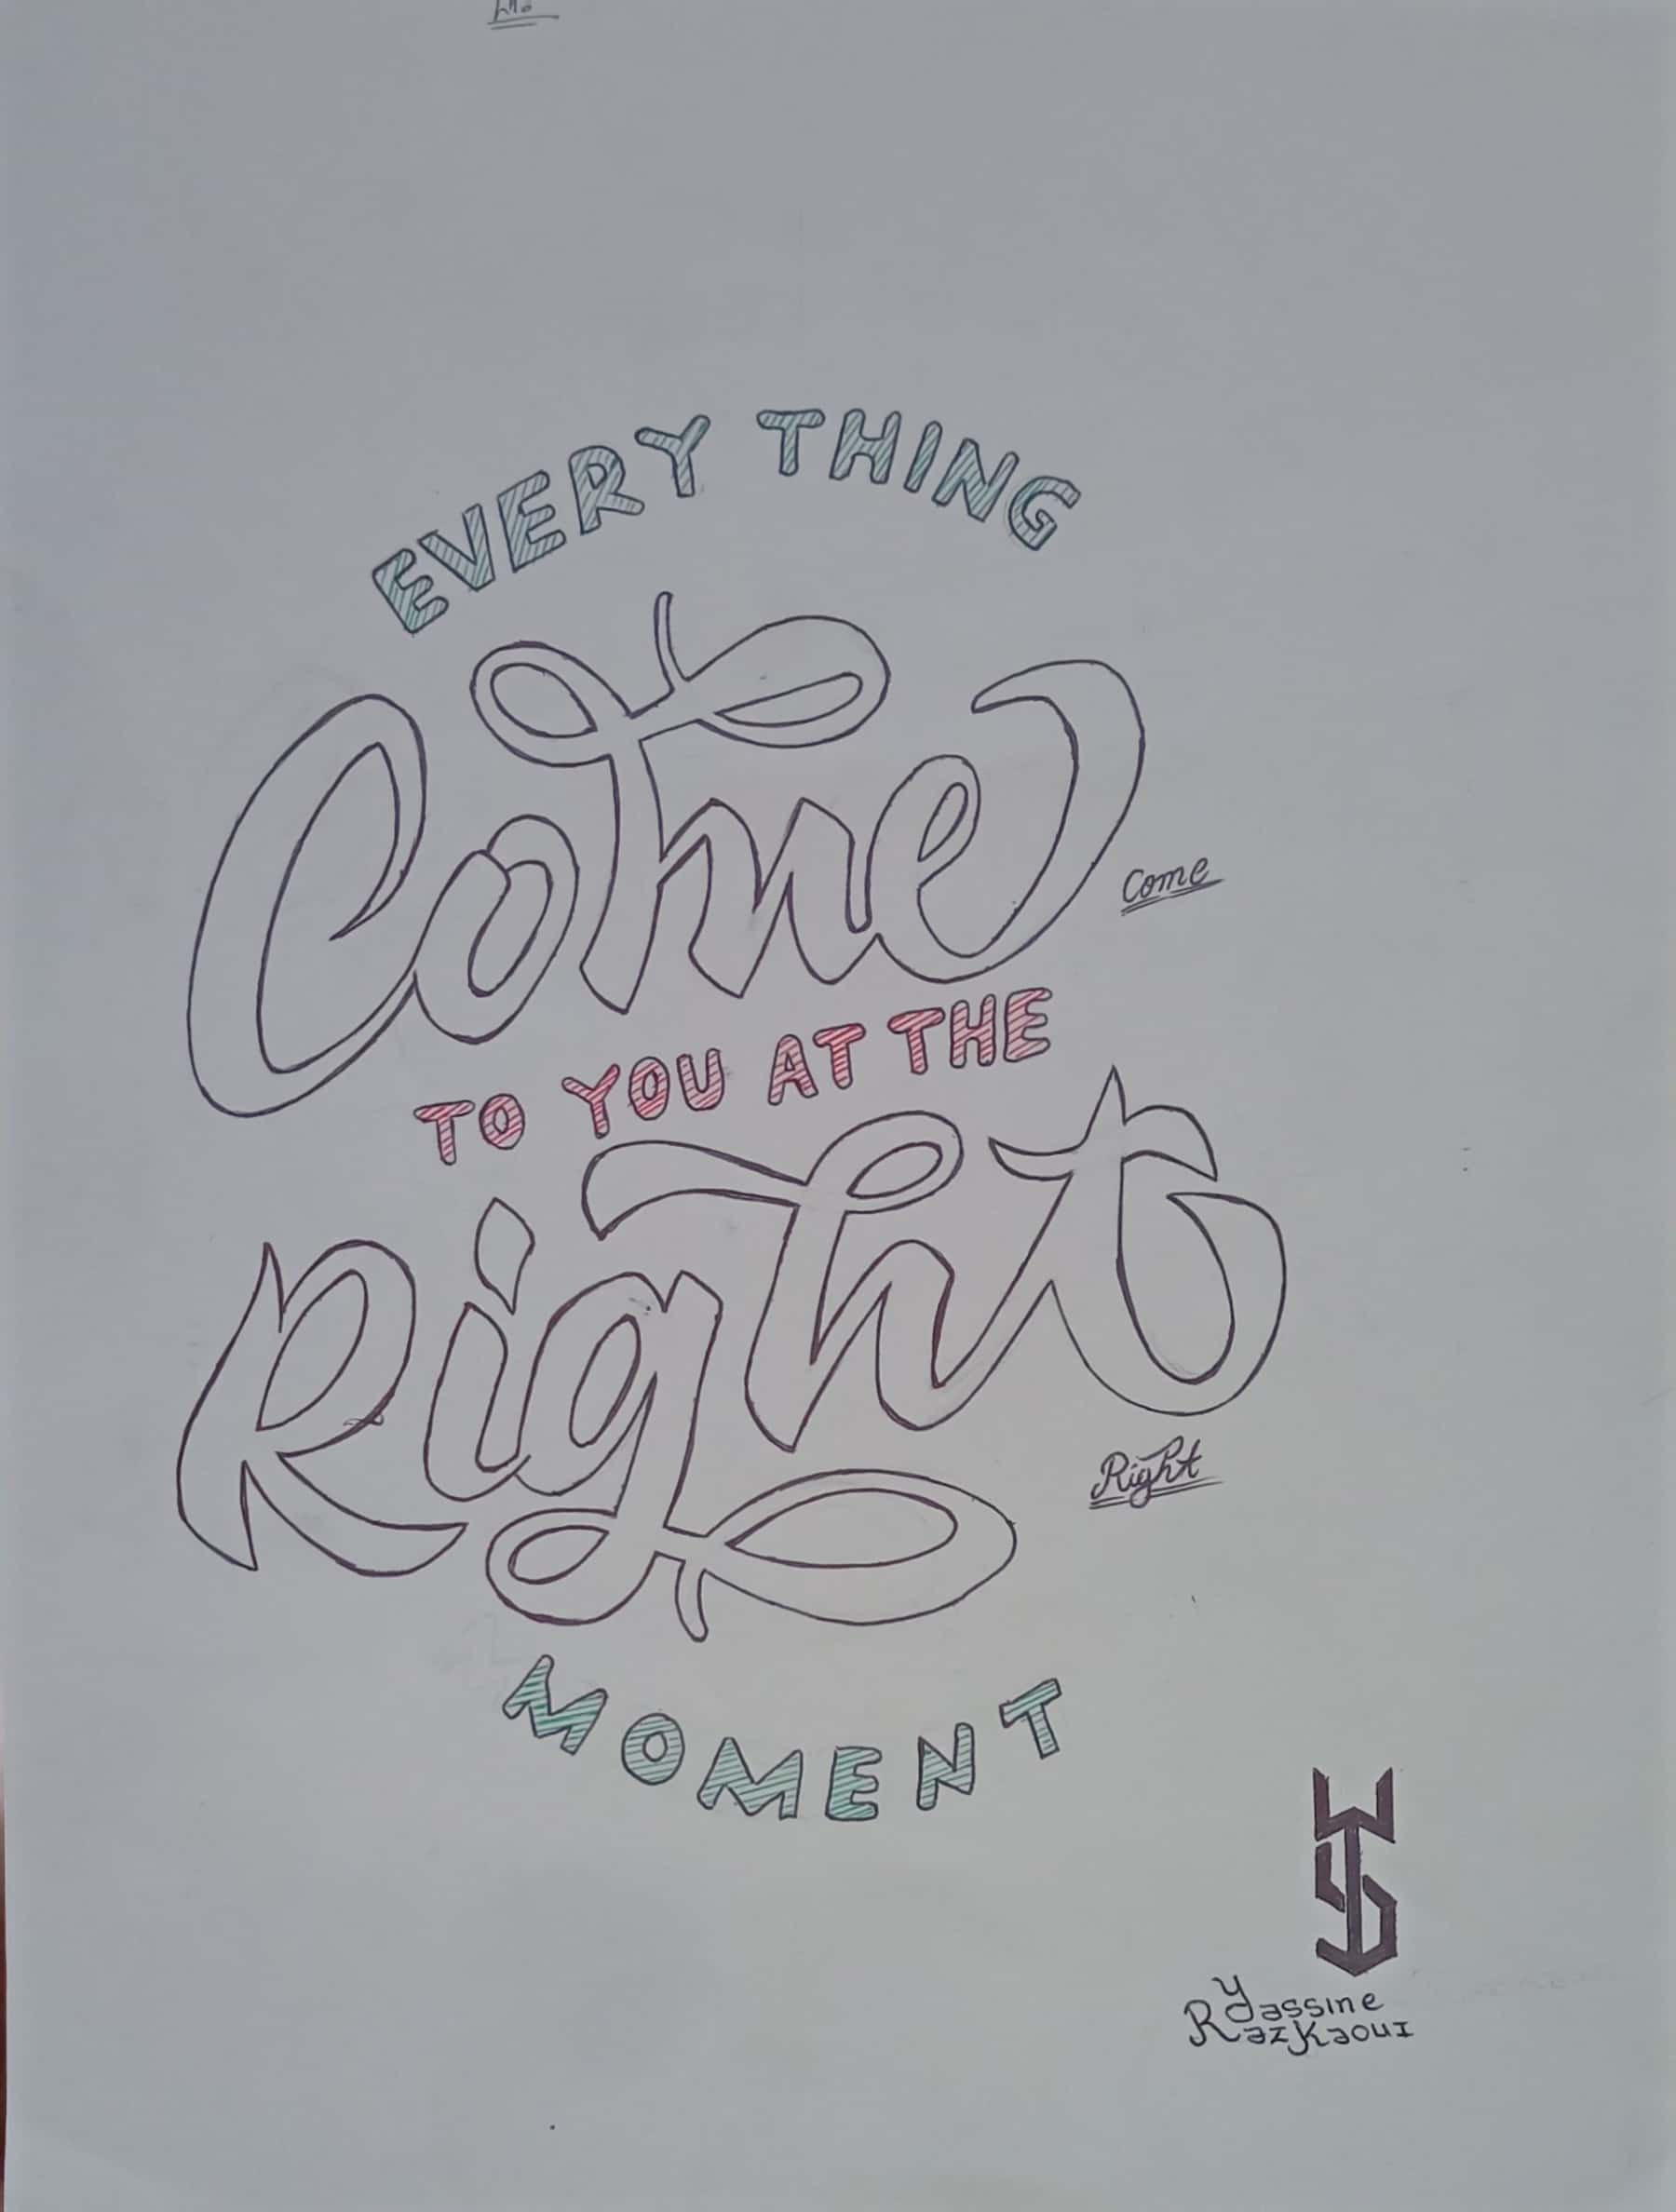 EVERY THING
Come
Come
TO YOU AT THE
Right
Right
MOMENT
Yassine
Razkaoui